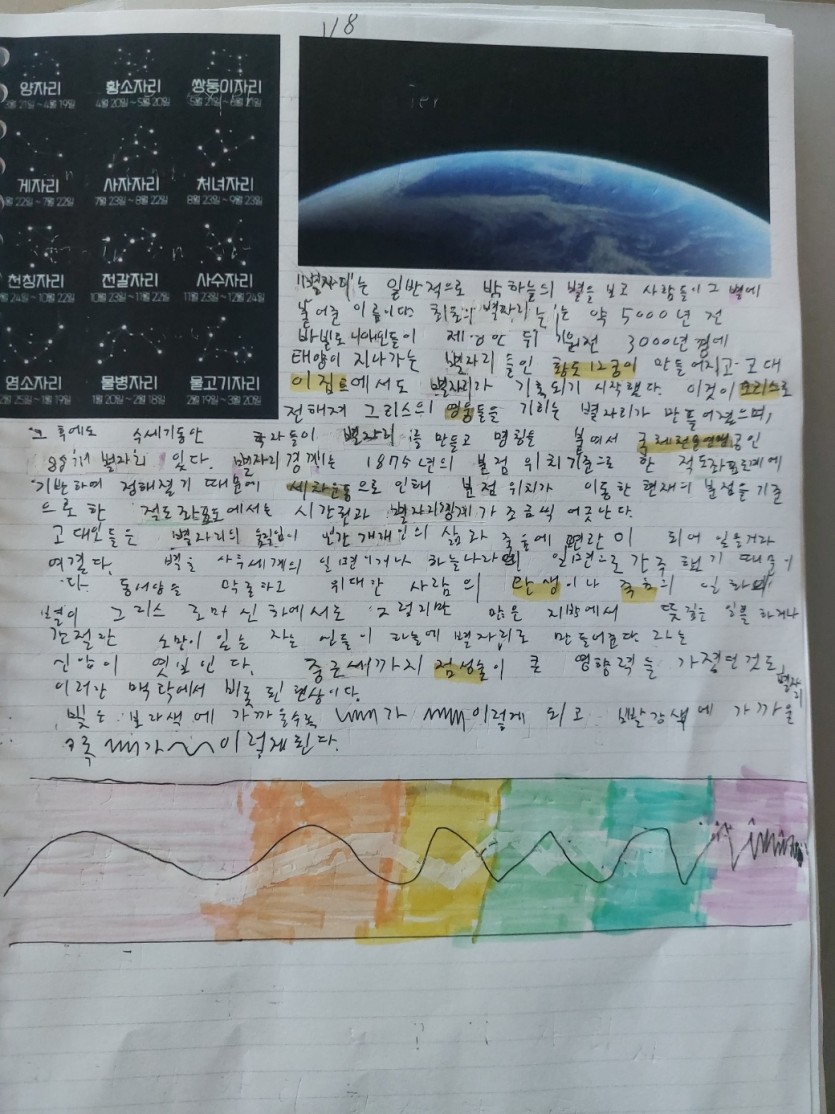 1/8
양자리 황소자리 쌍둥이자리
3월 21일~4월 19일 4월 20일~5월 20일 5월 21일~6월 21일
게자리 사자자리 처녀자리
월 22일~7월 22일 7월 23일~8월 22일 8월 23일~9월 23일
천칭자리 전갈자리 사수자리
월 24일~10월 22일 10월 23일~11월 22일 11월 23일~12월 24일
염소자리 물병자리 물고기자리
월 25일~1월 19일 1월 20일~2월 18일 2월 19일~3월 20일
"별자리"는 일반적으로 밤하늘의 별을 보고 사람들이 그 별에
붙여준 이름이다. 최초의 별자리는 약 5000년 전
바빌로니아인들이 3000년경에
태양이 지나가는 별자리들인 황도12궁이 만들어지고 고대
이집트에서도 별자리가 기록되기 시작했다. 이것이 그리스로
전해져 그리스의 영웅들을 기리는 별자리가 만들어졌으며,
그 후에도 수세기동안 별자리를 만들고 명칭을 붙여서 공인
88개 별자리 있다. 별자리경계는 1875년의 분점 위치기준으로 한 적도좌표계에
기반하여 정해졌기 때문에 세차운동으로 인해 분점 위치가 이동한 현재의 분점을 기준
으로 한 적도좌표도에서는 별자리경계가 조금씩 어긋난다.
고대인들은 별자리의 움직임이 인간 개개인의 삶과 죽음에
여겼다. 별을 사후세계의 일면이거나 하늘나라의 일면으로 간주했기 때문이
다. 동서양을 막론하고 위대한 사람의 탄생이나 죽음의
별이 그리스 로마 신화에서도 그렇지만 많은 뜻깊은 일을 하거나
간절한 소망이 있는 자는 신들이 하늘에 별자리로 만들어준다 라는
신앙이 엿보인다. 중근세까지 점성술이 큰 영향력을 가졌던것도
이러한 맥락에서 비롯된 현상이다. 별자리
빛은 보라색에 가까울수록 가 이렇게 되고 빨강색에 가까울
수록 가 이렇게된다.